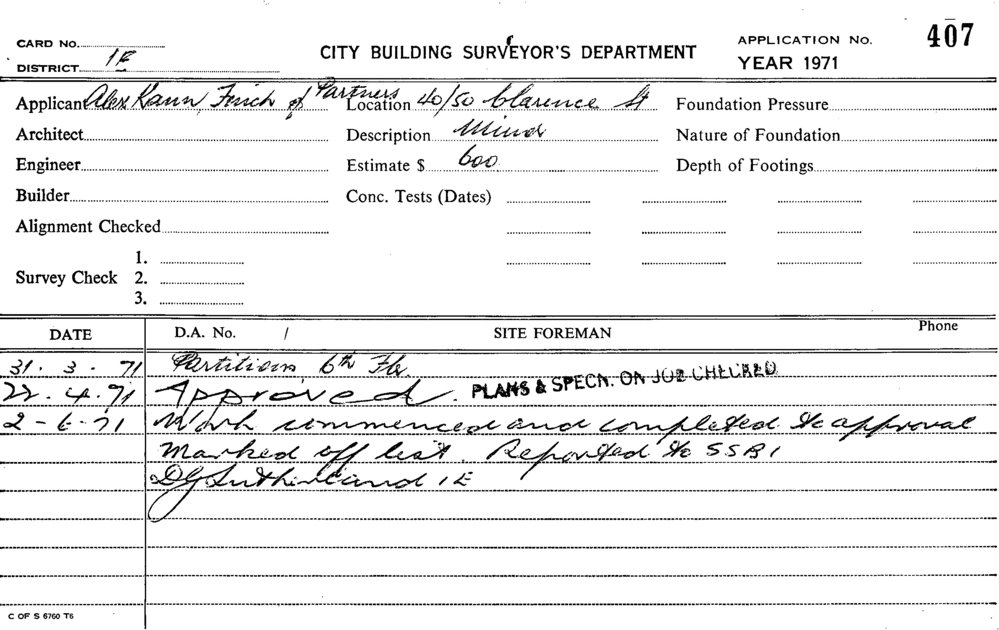 CARD No.
DISTRICT 1E
CITY BUILDING SURVEYOR'S DEPARTMENT
APPLICATION No. 407
YEAR 1971
Applicant Alex Kann, Finch & Partners Location 40/50 Clarence St Foundation Pressure
Architect Description Minor Nature of Foundation
Engineer Estimate $ 600 Depth of Footings
Builder Conc. Tests (Dates)
Alignment Checked
Survey Check 1.
2.
3.
DATE D.A. No. / SITE FOREMAN Phone
31. 3. 71 Partitions 6th Flr.
22. 4. 71 Approved. PLANS & SPECN. ON JOB CHECKED
2-6-71 Work commenced and completed to approval
Marked off list. Reported to SSBI
DG Sutherland 1E
C OF S 6760 T6